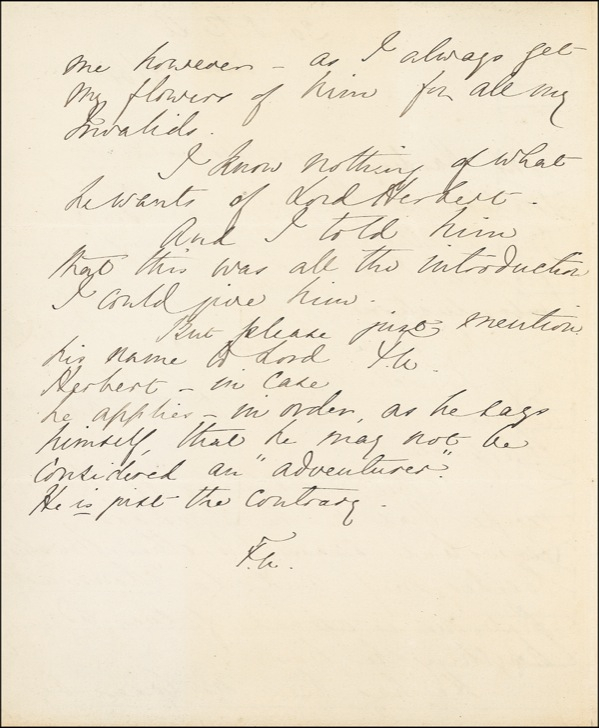 me however – as I always get
my flowers of him for all my
Invalids.
I know nothing of what
he wants of Lord Herbert.
And I told him
that this was all the introduction
I could give him.
But please just mention
his name to Lord F.N.
Herbert – in case
he applies – in order, as he says
himself, that he may not be
considered an "adventurer".
He is just the contrary.
F.N.